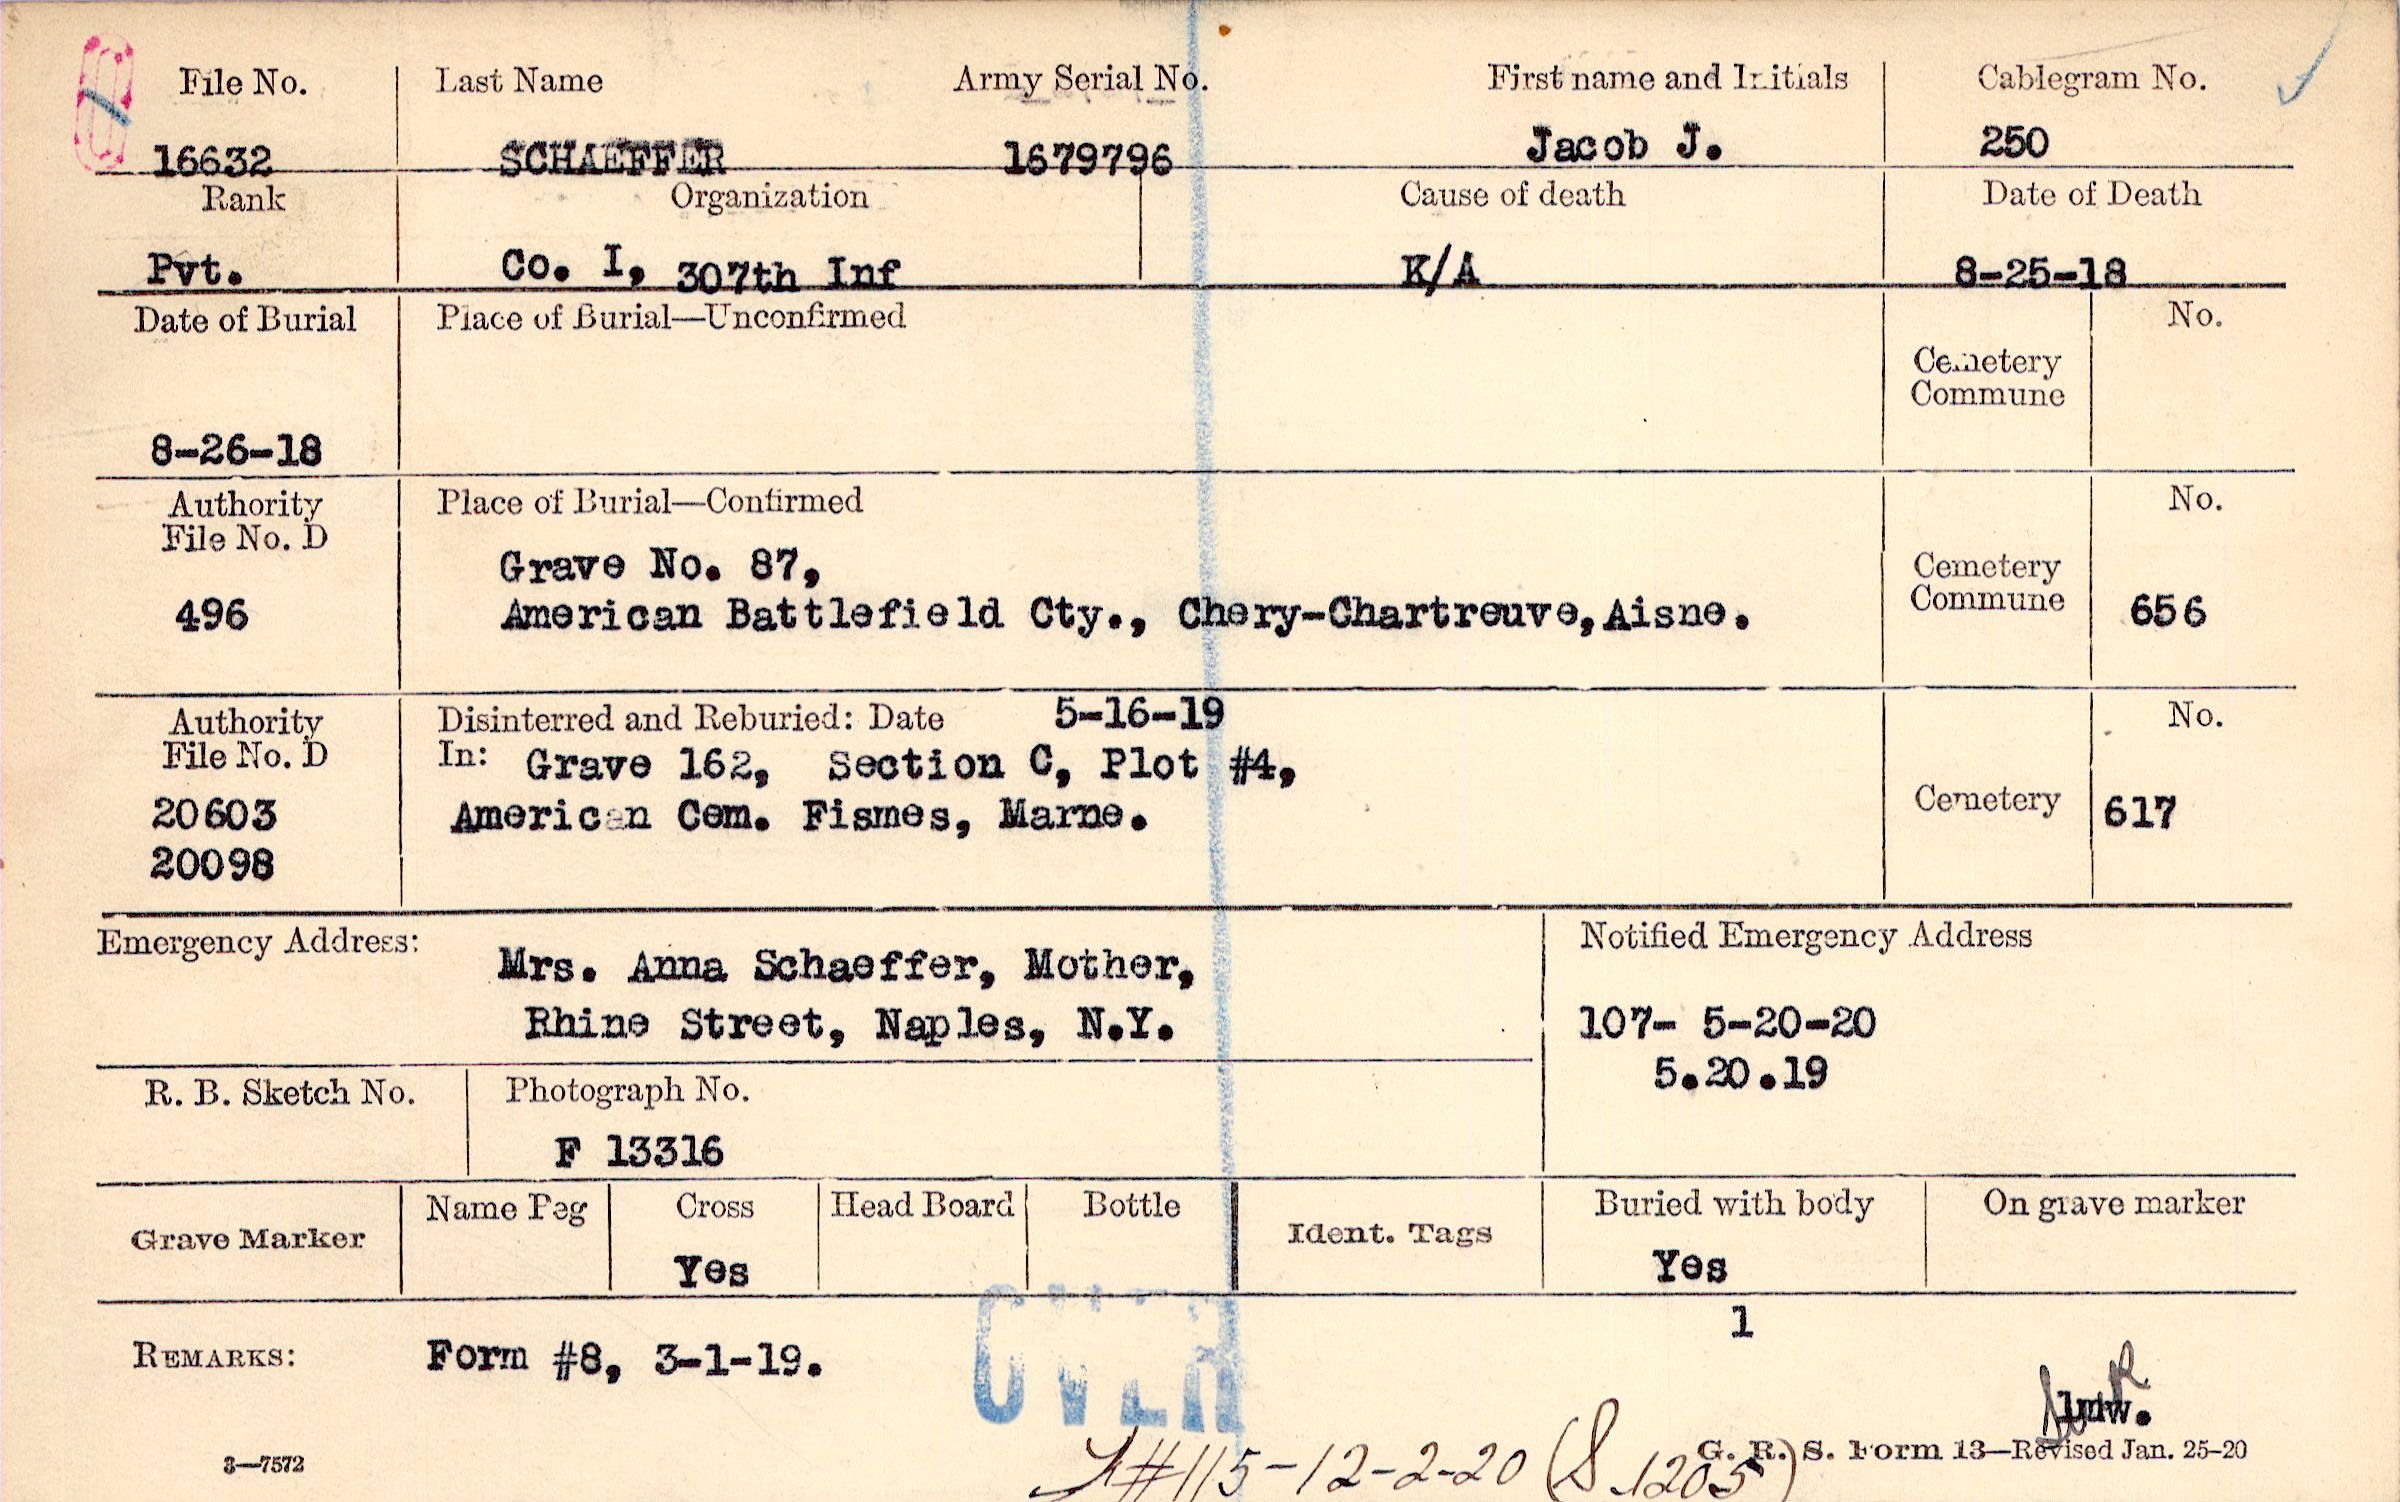 File No. Last Name Army Serial No. First name and Initials Cablegram No.
16632 SCHAEFFER 1679796 Jacob J. 250
Rank Organization Cause of death Date of Death
Pvt. Co. I, 307th Inf K/A 8-25-18
Date of Burial Place of Burial—Unconfirmed No.
Cemetery
Commune
8-26-18
Authority Place of Burial—Confirmed No.
File No. D
Grave No. 87, Cemetery
496 American Battlefield Cty., Chery-Chartreuve, Aisne. Commune 656
Authority Disinterred and Reburied: Date 5-16-19 No.
File No. D In: Grave 162, Section C, Plot #4,
20603 American Cem. Fismes, Marne. Cemetery 617
20098
Emergency Address: Mrs. Anna Schaeffer, Mother, Notified Emergency Address
Rhine Street, Naples, N.Y. 107- 5-20-20
5.20.19
R. B. Sketch No. Photograph No.
F 13316
Grave Marker Name Peg Cross Head Board Bottle Ident. Tags Buried with body On grave marker
Yes Yes
1
REMARKS: Form #8, 3-1-19. OVER
lmw.
3—7572 #115-12-2-20 (S. 1205) G. R. S. Form 13—Revised Jan. 25-20